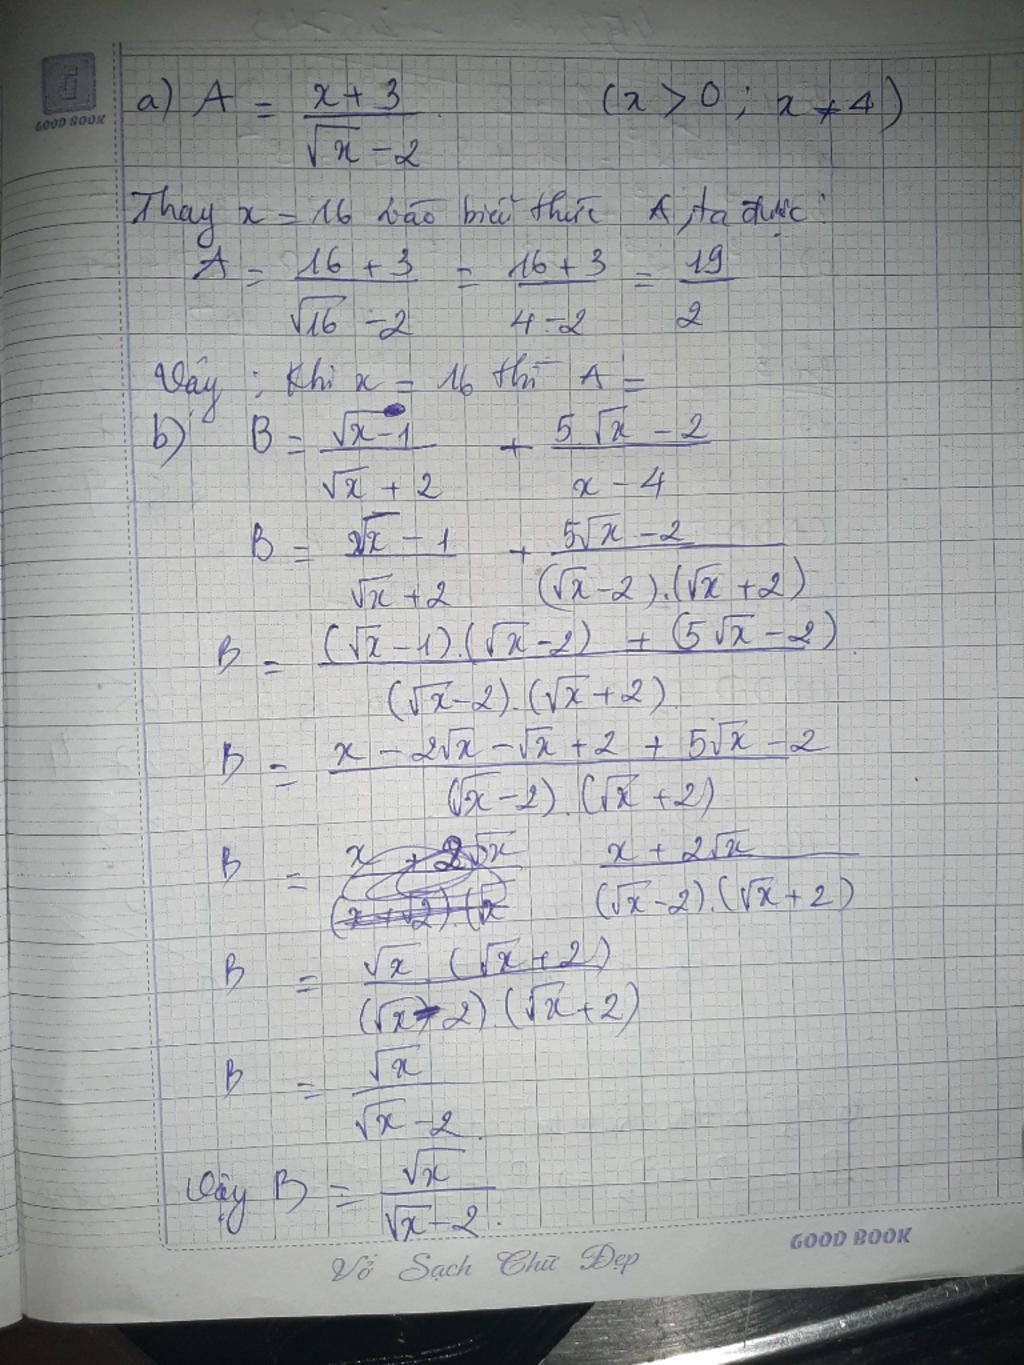 GOOD BOOK
a) A = (x + 3)/(√x - 2) (x > 0 ; x ≠ 4)
Thay x = 16 vào biểu thức A, ta được:
A = (16 + 3)/(√16 - 2) = (16 + 3)/(4 - 2) = 19/2
Vậy : Khi x = 16 thì A =
b) B = (√x - 1)/(√x + 2) + (5√x - 2)/(x - 4)
B = (√x - 1)/(√x + 2) + (5√x - 2)/((√x - 2).(√x + 2))
B = ((√x - 1).(√x - 2) + (5√x - 2))/((√x - 2).(√x + 2))
B = (x - 2√x - √x + 2 + 5√x - 2)/((√x - 2).(√x + 2))
B = (x + 2√x)/((√x - 2).(√x + 2))
B = (√x.(√x + 2))/((√x - 2).(√x + 2))
B = √x/(√x - 2)
Vậy B = √x/(√x - 2).
GOOD BOOK
Vở Sạch Chữ Đẹp